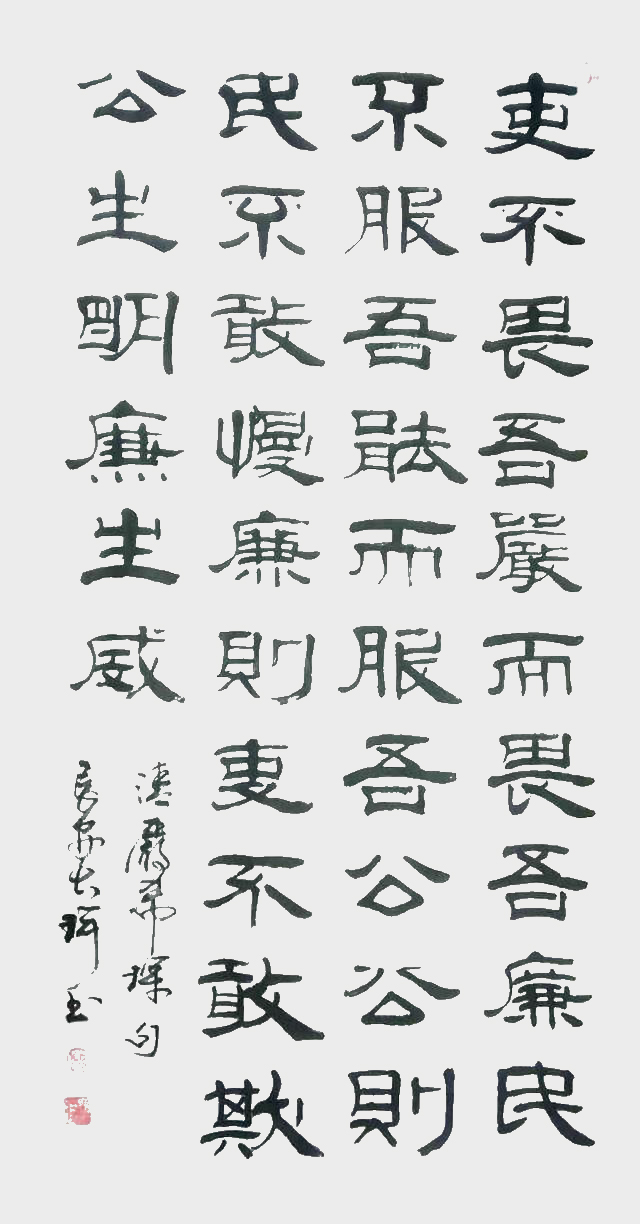 吏不畏吾嚴而畏吾廉民
不服吾能而服吾公公則
民不敢慢廉則吏不敢欺
公生明廉生威
清嚴希句
長安